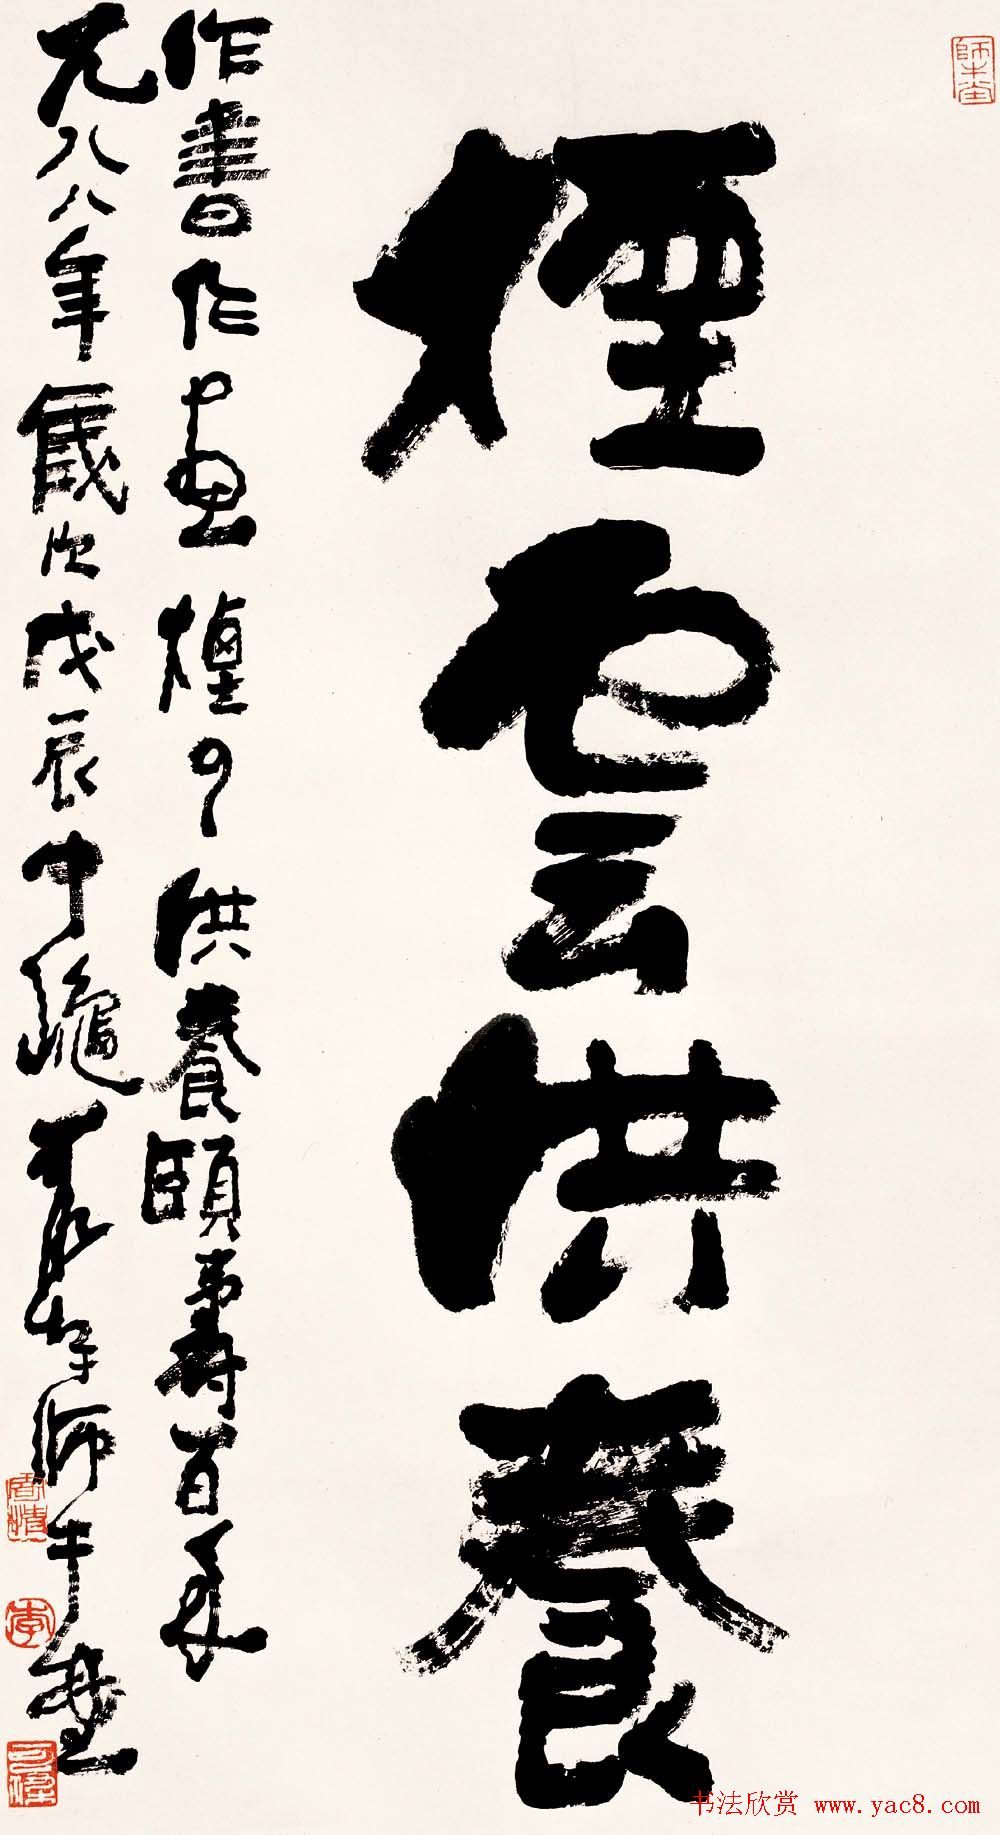 師牛堂
煙雲供養
作書作畫煙雲供養頤壽百年
一九八八年歲次戊辰中龝可染於師牛堂
李
可染
书法欣赏 www.yac8.com